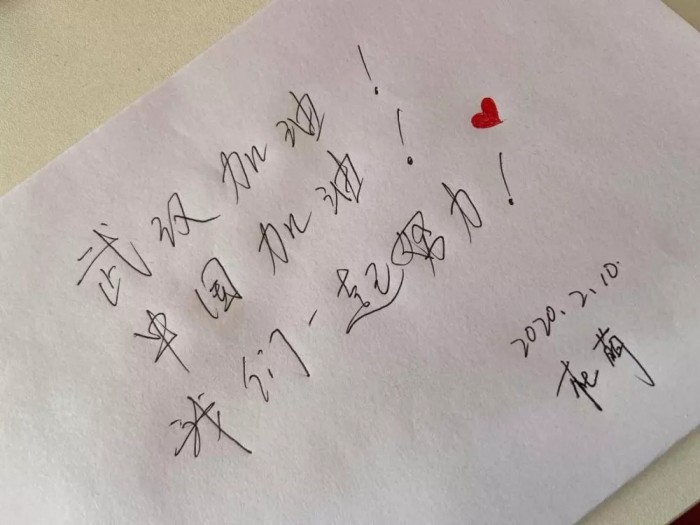 武汉加油！
中国加油！
我们一起努力！
2020.2.10.